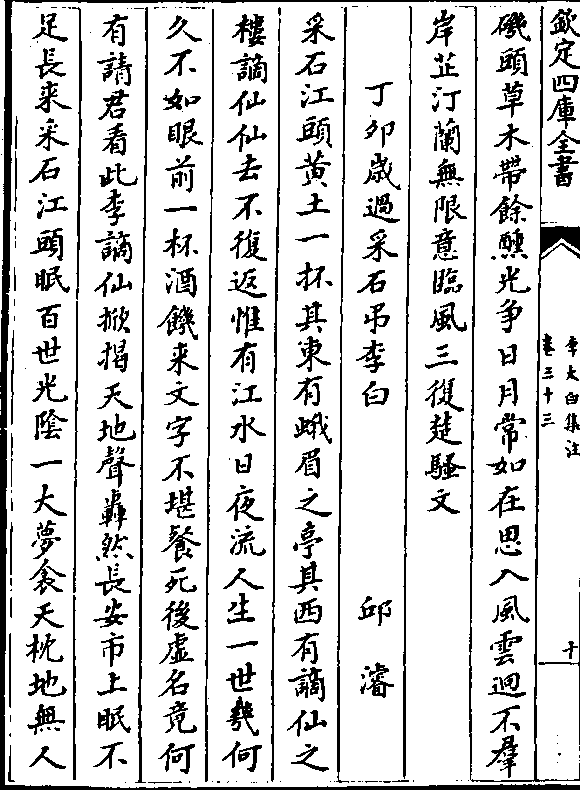 欽定四庫全書
李太白集注
卷三十三
十
磯頭草木帶餘醺光争日月常如在思入風雲迥不羣
岸芷汀蘭無限意臨風三復楚騷文
丁卯歲過采石弔李白 邱濬
采石江頭黄土一抔其東有蛾眉之亭其西有謫仙之
樓謫仙仙去不復返惟有江水日夜流人生一世幾何
久不如眼前一杯酒饑来文字不堪餐死後虚名竟何
有請君看此李謫仙掀揭天地聲轟然長安市上眠不
足長来采石江頭眠百世光陰一大夢衾天枕地無人